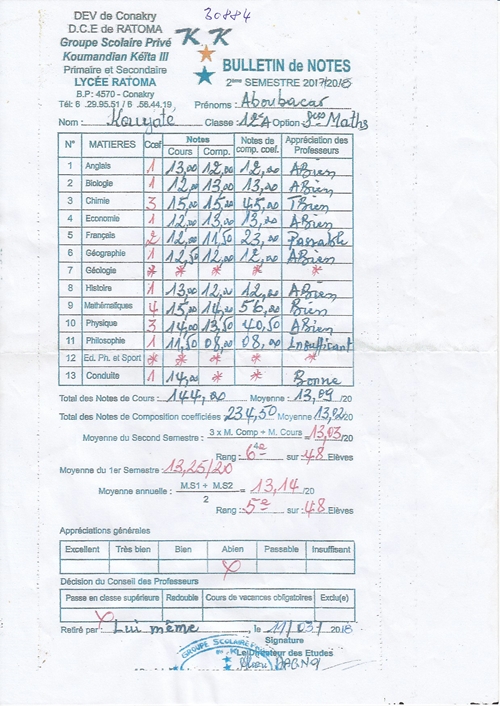 DEV de Conakry
30884
D.C.E de RATOMA
Groupe Scolaire Privé K K
Koumandian Kéïta III
BULLETIN de NOTES
Primaire et Secondaire
2ème SEMESTRE 2017/2018
LYCÉE RATOMA
B.P: 4570 - Conakry
Tél: 6 .29.95.51 / 6 .56.44.19 Prénoms : Aboubacar
Nom : Kouyaté Classe : 12eA Option : Sces Maths
N° MATIERES Coef Notes Notes de comp. coef. Appréciation des Professeurs
Cours Comp.
1 Anglais 1 13,00 12,00 12,00 ABien
2 Biologie 1 12,00 13,00 13,00 ABien
3 Chimie 3 15,00 15,00 45,00 TBien
4 Economie 1 12,00 13,00 13,00 ABien
5 Français 2 12,00 11,50 23,00 Passable
6 Géographie 1 12,50 12,00 12,00 ABien
7 Géologie * * * * *
8 Histoire 1 13,00 12,00 12,00 ABien
9 Mathématiques 4 15,00 14,00 56,00 Bien
10 Physique 3 14,00 13,50 40,50 ABien
11 Philosophie 1 11,50 08,00 08,00 Insuffisant
12 Ed. Ph. et Sport * * * * *
13 Conduite 1 14,00 * * Bonne
Total des Notes de Cours : 144,00 Moyenne : 13,09 /20
Total des Notes de Composition coefficiées : 234,50 Moyenne 13,02/20
Moyenne du Second Semestre : 3 x M. Comp + M. Cours = 13,03/20
4
Rang : 6e sur 48 Elèves
Moyenne du 1er Semestre : 13,25/20
Moyenne annuelle : M.S1 + M.S2 = 13,14 /20
2
Rang : 5e sur : 48 Elèves
Appréciations générales
Excellent Très bien Bien Abien Passable Insuffisant
Décision du Conseil des Professeurs
Passe en classe supérieure Redouble Cours de vacances obligatoires Exclu(e)
Retiré par : Lui même , le 11/03/ 2018
Signature
GROUPE SCOLAIRE
Le Directeur des Etudes